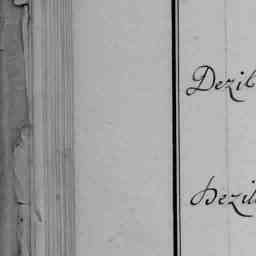 Dezil
Dezil